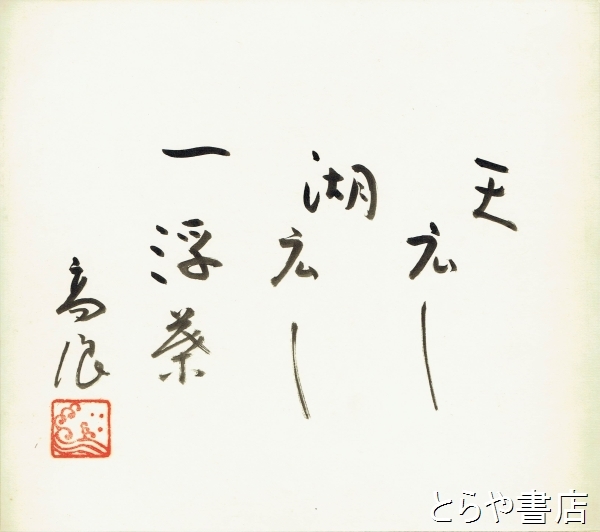 天
広し
湖
広し
一浮葉
高浪
とらや書店